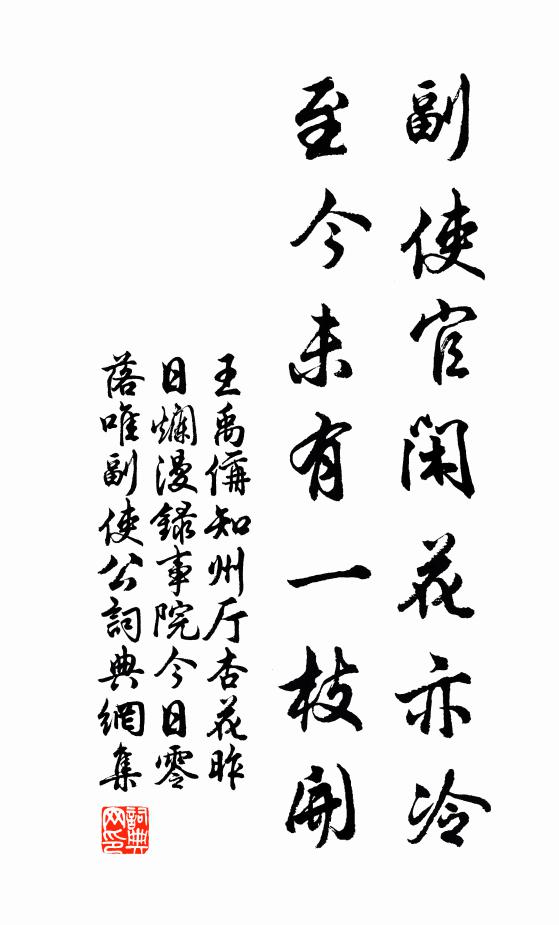 副使官閑花亦冷
至今未有一枝開
王禹偁知州厅杏花昨
日爛漫錄事院今日零
落唯副使公詞典網集
詞典网印